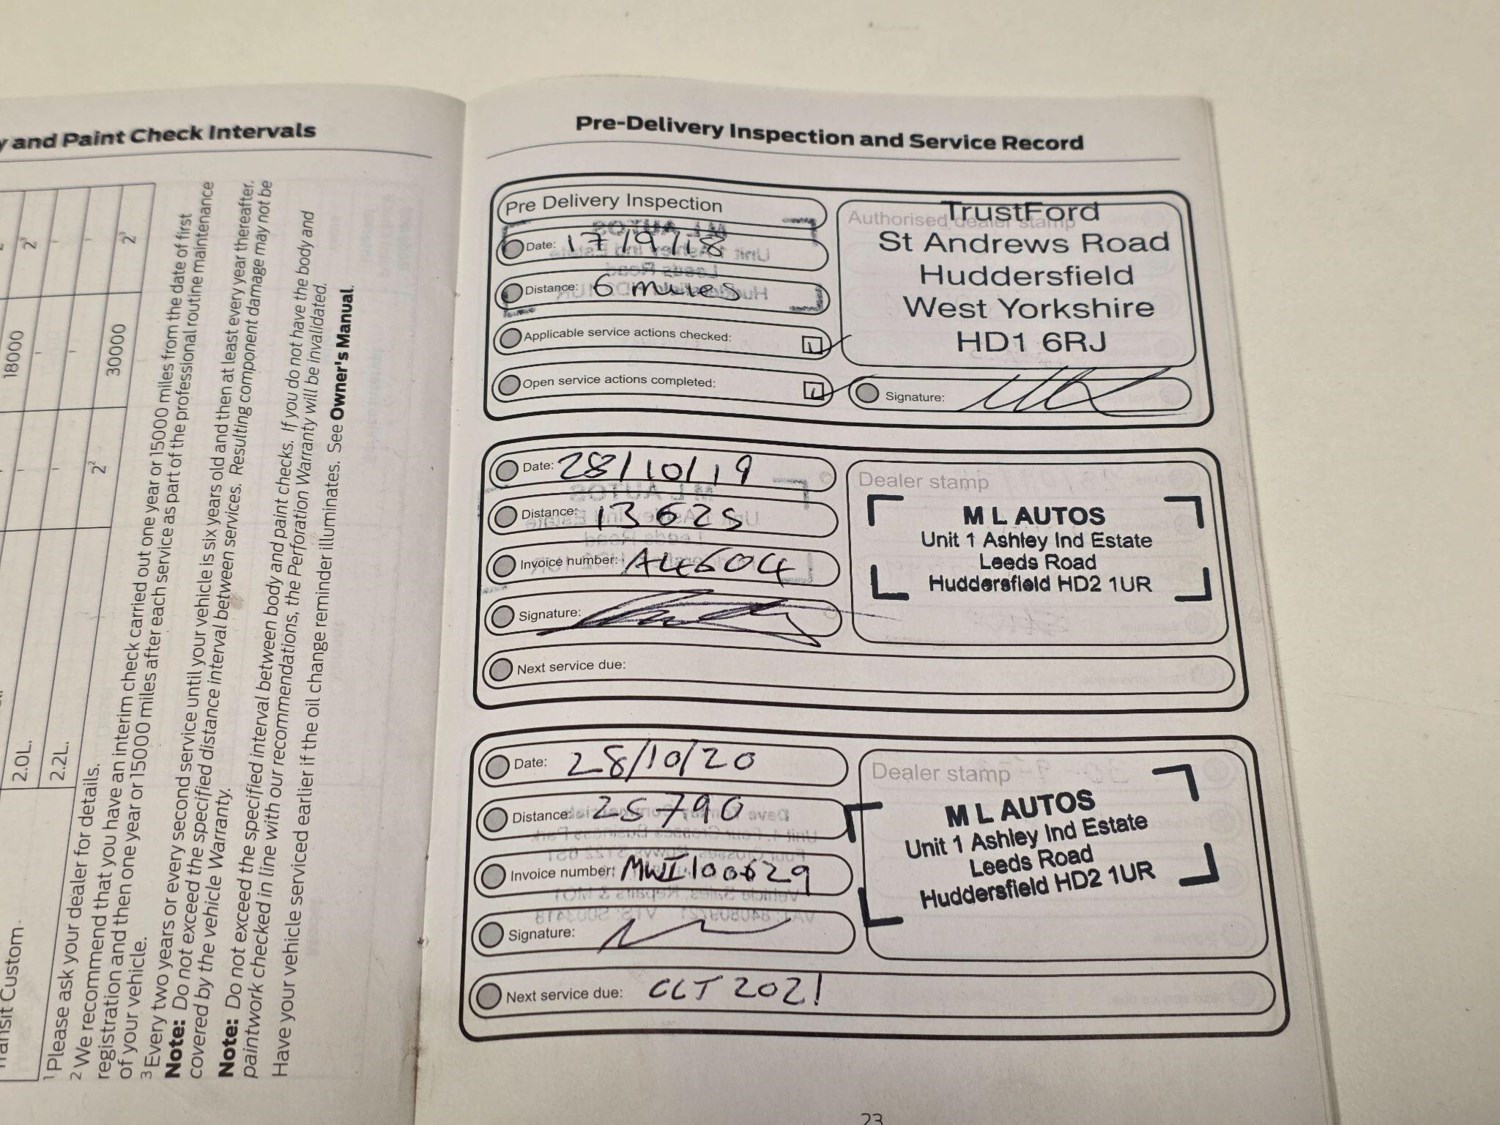 y and Paint Check Intervals
2³
18000
-
-
2³
30000
-
-
2²
2.0L.
2.2L.
ransit Custom.
¹ Please ask your dealer for details.
² We recommend that you have an interim check carried out one year or 15000 miles from the date of first
registration and then one year or 15000 miles after each service as part of the professional routine maintenance
of your vehicle.
³ Every two years or every second service until your vehicle is six years old and then at least every year thereafter.
Note: Do not exceed the specified distance interval between services. Resulting component damage may not be
covered by the vehicle Warranty.
Note: Do not exceed the specified interval between body and paint checks. If you do not have the body and
paintwork checked in line with our recommendations, the Perforation Warranty will be invalidated.
Have your vehicle serviced earlier if the oil change reminder illuminates. See Owner's Manual.
Pre-Delivery Inspection and Service Record
Pre Delivery Inspection
Date: 17/9/18
Distance: 6 miles
Applicable service actions checked:
Open service actions completed:
Authorised dealer stamp
TrustFord
St Andrews Road
Huddersfield
West Yorkshire
HD1 6RJ
Signature:
Date: 28/10/19
Distance: 13625
Invoice number:
Signature:
Next service due:
Dealer stamp
M L AUTOS
Unit 1 Ashley Ind Estate
Leeds Road
Huddersfield HD2 1UR
Date: 28/10/20
Distance: 25790
Invoice number: MWI100629
Signature:
Next service due: OCT 2021
Dealer stamp
M L AUTOS
Unit 1 Ashley Ind Estate
Leeds Road
Huddersfield HD2 1UR
23